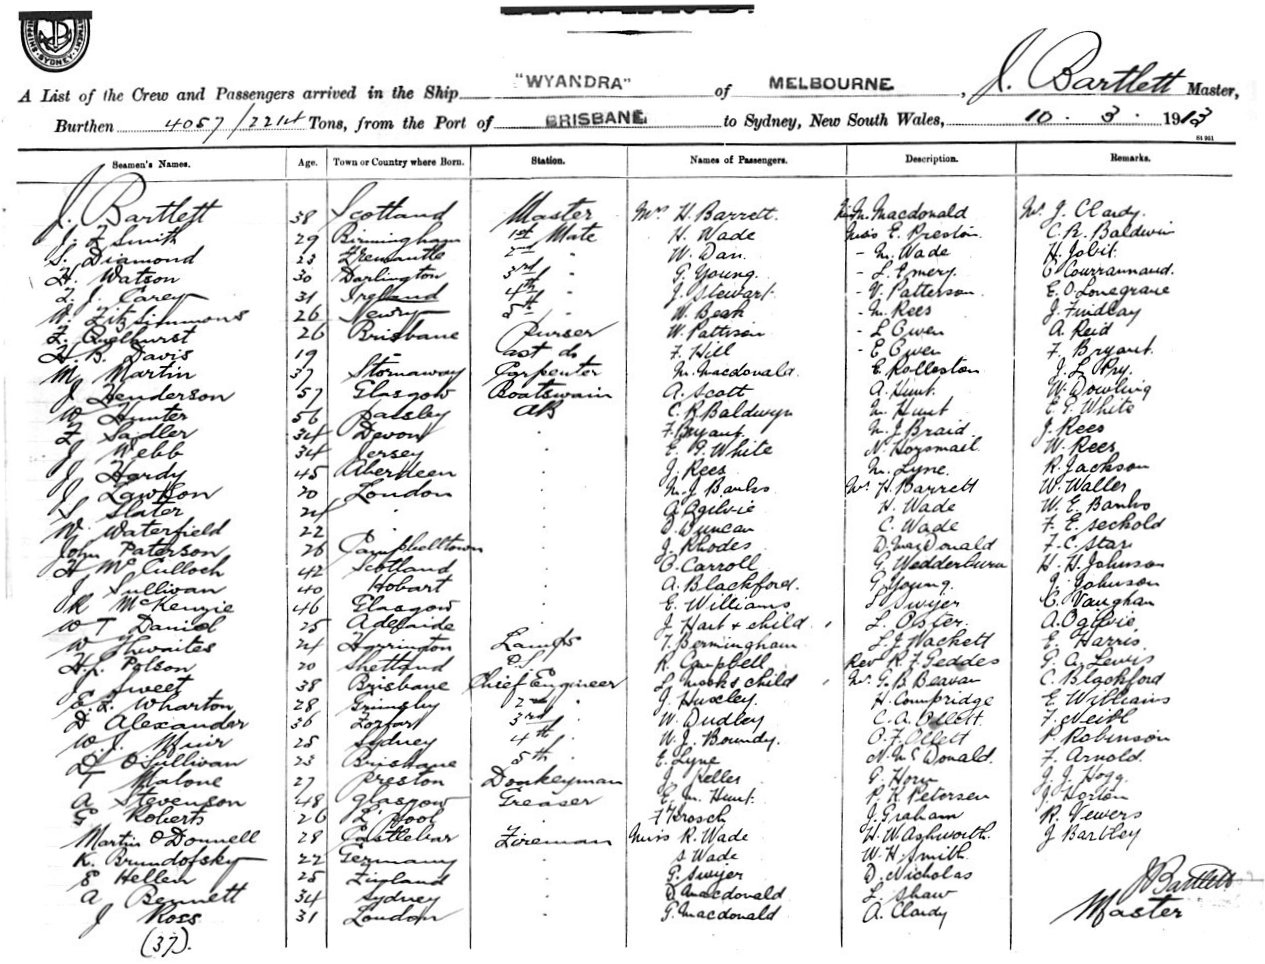 A List of the Crew and Passengers arrived in the Ship "WYANDRA" of MELBOURNE, J. Bartlett Master,
Burthen 4057/2214 Tons, from the Port of BRISBANE to Sydney, New South Wales, 10 . 3 . 1913
Seamen's Names. Age. Town or Country where Born. Station. Names of Passengers. Description. Remarks.
J. Bartlett 38 Scotland Master Mrs H. Barrett. M. Macdonald Mr. J. Clardy.
J. F. Smith 29 Birmingham 1st Mate H. Wade Miss E. Preston. C. R. Baldwin
S. Diamond 23 Fremantle 2nd " W. Dan. - M. Wade H. Jobit.
H. Watson 30 Darlington 3rd " G. Young. - L. Emery. C Courrannaud.
L. J. Carey 31 Ireland 4th " J. Stewart. - V. Patterson. E. O. Lonegrave
W. Fitzsimmons 26 Newry 5th " W. Beak - M. Rees J. Findlay
F. 26 Brisbane Purser W. Pattison - L Owen A. Reid
H. B. Davis 19 " asst do F. Hill - E Owen F. Bryant.
M. Martin 37 Stornaway Carpenter M. Macdonald. E. Rolleston J. L. Fry.
J Henderson 57 Glasgow Boatswain A. Scott A. Hunt. W. Dowling
W Hunter 56 Paisley AB C. R. Baldwyn M. Hunt E. G. White
F. Sadler 34 Devon " F. Bryant. M. J. Braid J. Rees
J Webb 34 Jersey " E. G. White N. Horsnail. W. Rees
J Hardy 45 Aberdeen " J. Rees M. Lyne. R. Jackson
J Lawson 20 London " M. J Banks Mr. H. Barrett W. Waller
S Slater 21 " " A. Ogilvie H. Wade W. E. Banks
W. Waterfield 22 " " D. Duncan C. Wade F. E. Sechold
John Paterson 26 Campbelltown " J. Rhodes D. MacDonald F. C. Star
H McCulloch 42 Scotland " C. Carroll G. Wedderburn H. H. Johnson
J Sullivan 40 Hobart " A. Blackford. G. Young. J. Johnson
R McKenzie 46 Glasgow " E. Williams L. Dwyer C. Vaughan
W T Daniel 25 Adelaide " J. Hart + child L. Oster. A. Ogilvie.
W Thwaites 24 Harrington Lamps T. Bermingham L. J. Wackett E. Harris.
H. J. Polson 20 Shetland R. Campbell Rev R. F. Geddes G. A. Lewis
J Sweet 38 Brisbane Chief Engineer L. & child Mr. G. B. Beavan C. Blackford
E. L. Wharton 28 Grimsby 2nd " J. Huxley. H. Compridge E Williams
D Alexander 36 Forfar 3rd " W. Dudley C. A. Ollett F. Neibl
W. J. Muir 25 Sydney 4th " W. J. Boundy. O. F. Ollett P. Robinson
D O'Sullivan 23 Brisbane 5th " E. Lyne N. McDonald. F. Arnold.
T Malone 27 Preston Donkeyman J. Kelles G. Horn J. J. Hogg.
A Stevenson 48 Glasgow Greaser E. M. Hunt. P. K. Petersen J. Horton
G Roberts 26 L'Pool " F Krosch J. Graham R. Vewers
Martin O'Donnell 28 Castlebar Fireman Miss R. Wade H. W. Ashworth. J Bartley
K. Brundofsky 22 Germany " S Wade W. H. Smith.
E Hellen 25 Finland " G. Dwyer D. Nicholas
A Bennett 34 Sydney " D. Macdonald L. Shaw
J Ross 31 London " G. Macdonald A. Clardy
J Bartlett
Master
(37).